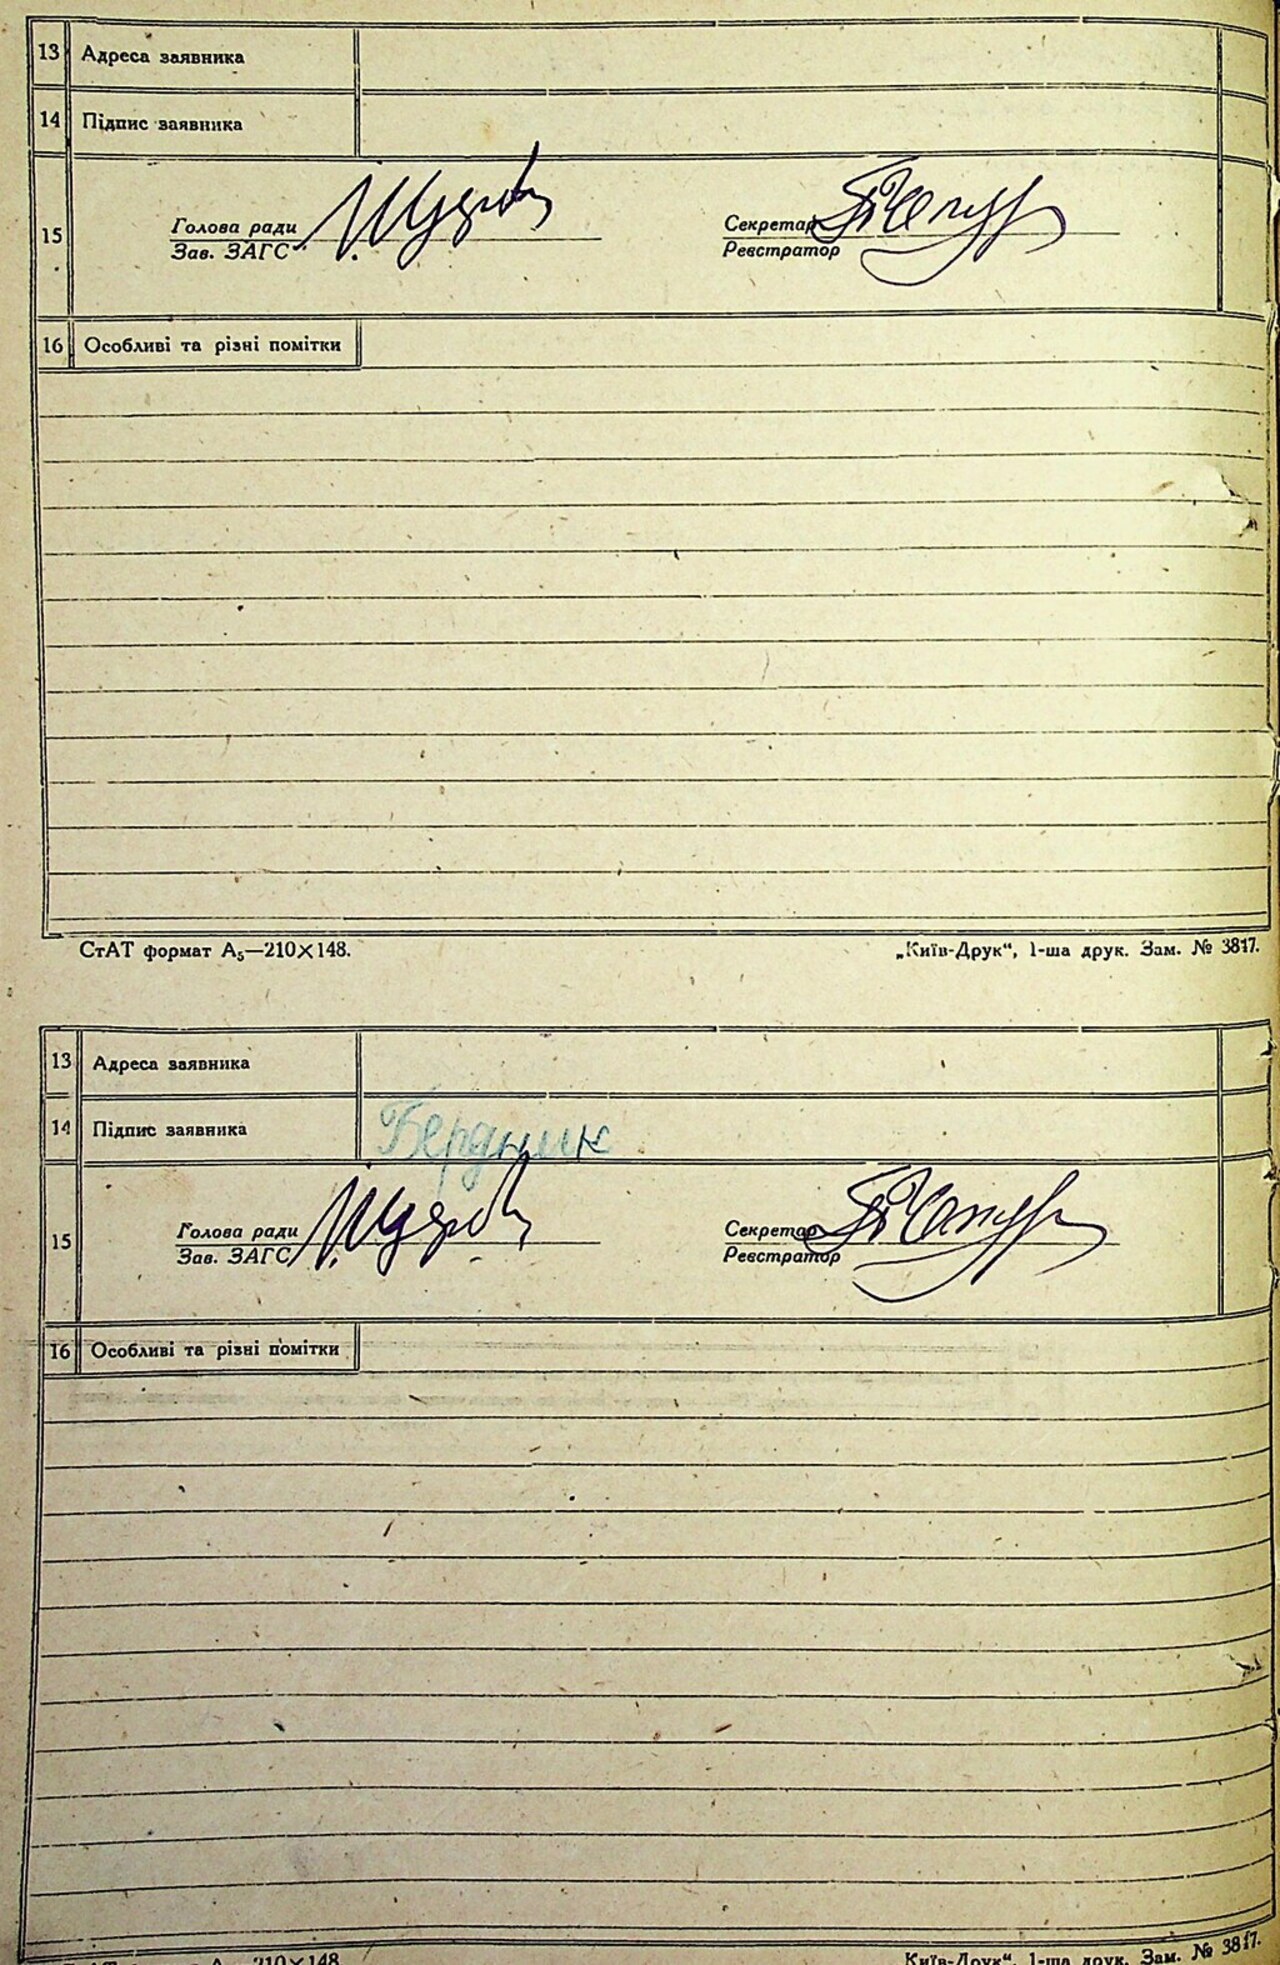 13 Адреса заявника
14 Підпис заявника
15 Голова ради
Зав. ЗАГС
Секретар
Реєстратор
16 Особливі та різні помітки
СтАТ формат А₅—210×148.
„Київ-Друк“, 1-ша друк. Зам. № 3817.
13 Адреса заявника
14 Підпис заявника Бердник
15 Голова ради
Зав. ЗАГС
Секретар
Реєстратор
16 Особливі та різні помітки
210×148
Київ-Друк“, 1-ша друк. Зам. № 3817.